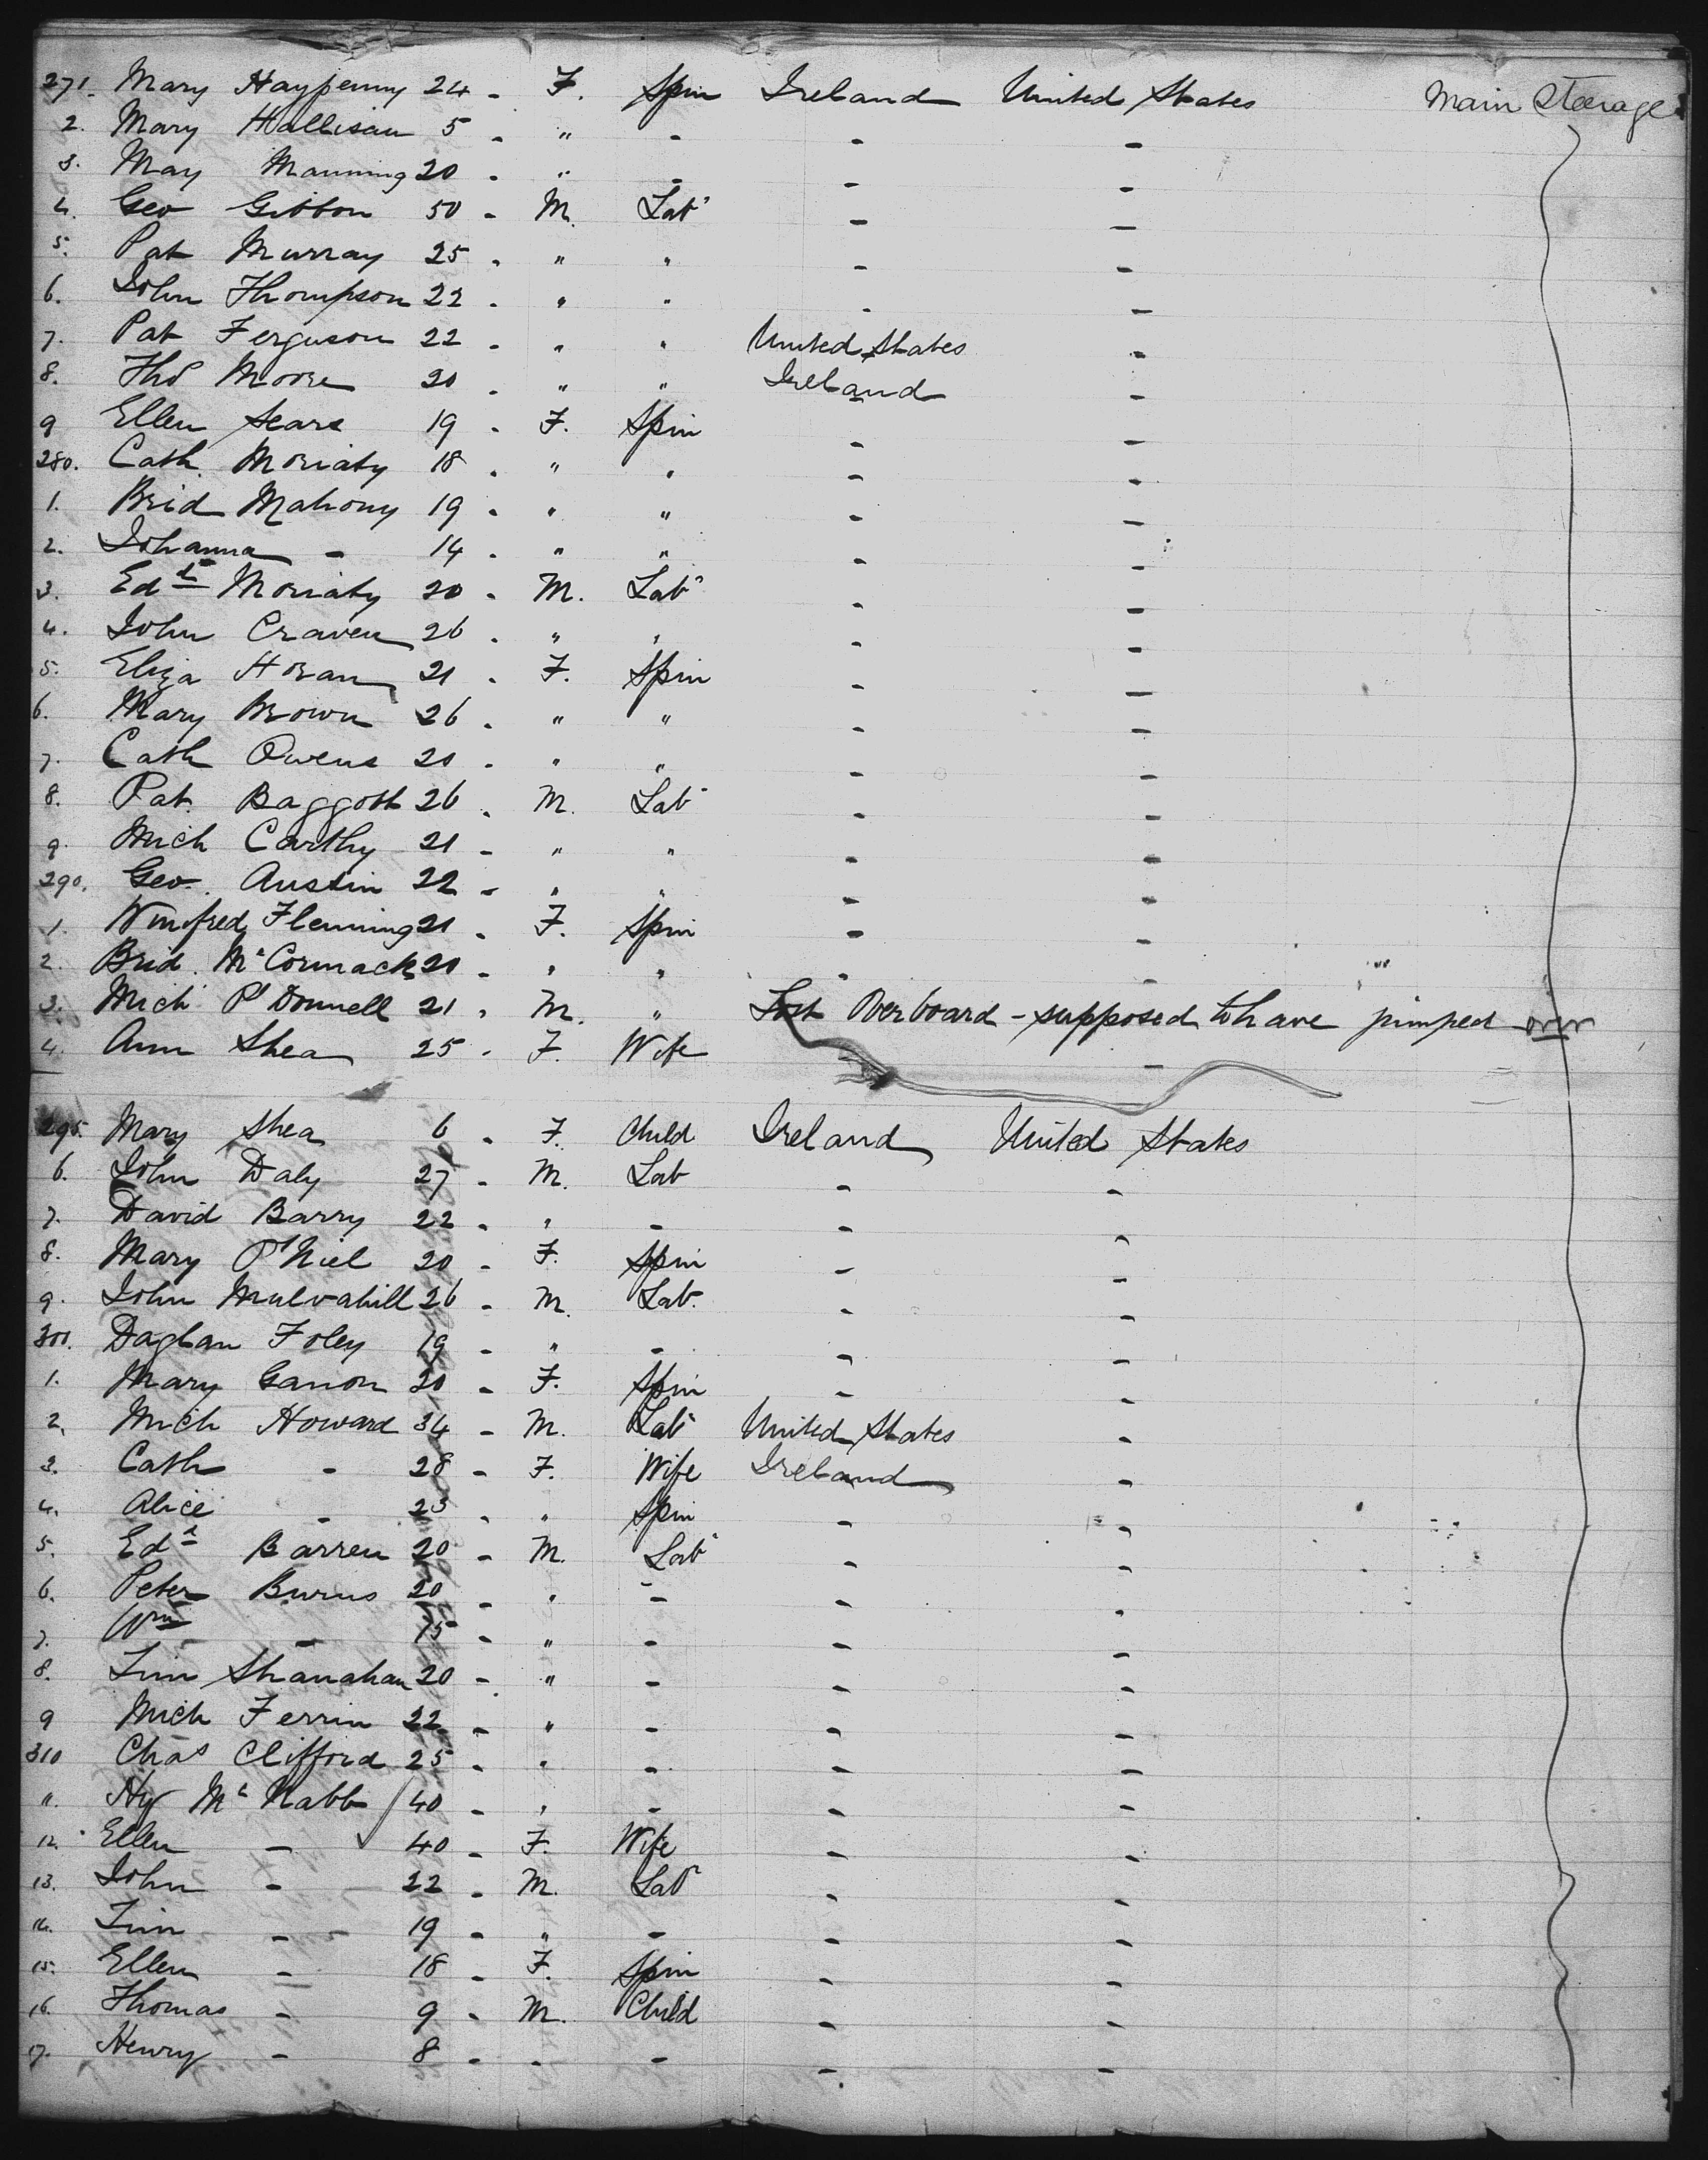 271. Mary Haypenny 24 - F. Spin Ireland United States Main Steerage
2. Mary Hallisan 5 - " - - -
3. May Manning 20 - " - - -
4. Geo Gibbon 50 - M. Labr - -
5. Pat Murray 25 - " " - -
6. John Thompson 22 - " " - -
7. Pat Ferguson 22 - " " United States -
8. Thos Moore 20 - " " Ireland -
9 Ellen Sears 19 - F. Spin - -
280. Cath Moriaty 18 - " " - -
1. Brid Mahony 19 - " " - -
2. Johanna - 14 - " " - -
3. Edd Moriaty 20 - M. Labr - -
4. John Craven 26 - " " - -
5. Eliza Horan 21 - F. Spin - -
6. Mary Brown 26 - " " - -
7. Cath Owens 20 - " " - -
8. Pat Baggott 26 - M. Labr - -
9. Mich Carthy 21 - " " - -
290. Geo. Austin 22 - " " - -
1. Winifred Flemming 21 - F. Spin - -
2. Brid McCormack 20 - " " - -
3. Mich O'Donnell 21 - M. " Lost Overboard - supposed to have jumped over
4. Ann Shea 25 - F. Wife -
295. Mary Shea 6 - F. Child Ireland United States
6. John Daly 27 - M. Lab - -
7. David Barry 22 - " - - -
8. Mary O'Niel 20 - F. Spin - -
9. John Mulvahill 26 - M. Lab. - -
300. Daglan Foley 19 - " - - -
1. Mary Ganon 20 - F. Spin - -
2. Mich Howard 34 - M. Labr United States -
3. Cath - 28 - F. Wife Ireland -
4. Alice - 23 - " Spin - -
5. Edd Barren 20 - M. Labr - -
6. Peter Burns 20 - " - - -
7. Wm - 15 - " - - -
8. Jim Shanahan 20 - " - - -
9 Mich Ferrin 22 - " - - -
310 Chas Clifford 25 - " - - -
11. Hy McNabb 40 - " - - -
12. Ellen - 40 - F. Wife - -
13. John - 22 - M. Labr - -
14. Jim - 19 - " - - -
15. Ellen - 18 - F. Spin - -
16. Thomas - 9 - M. Child - -
17. Henry - 8 - - - - -